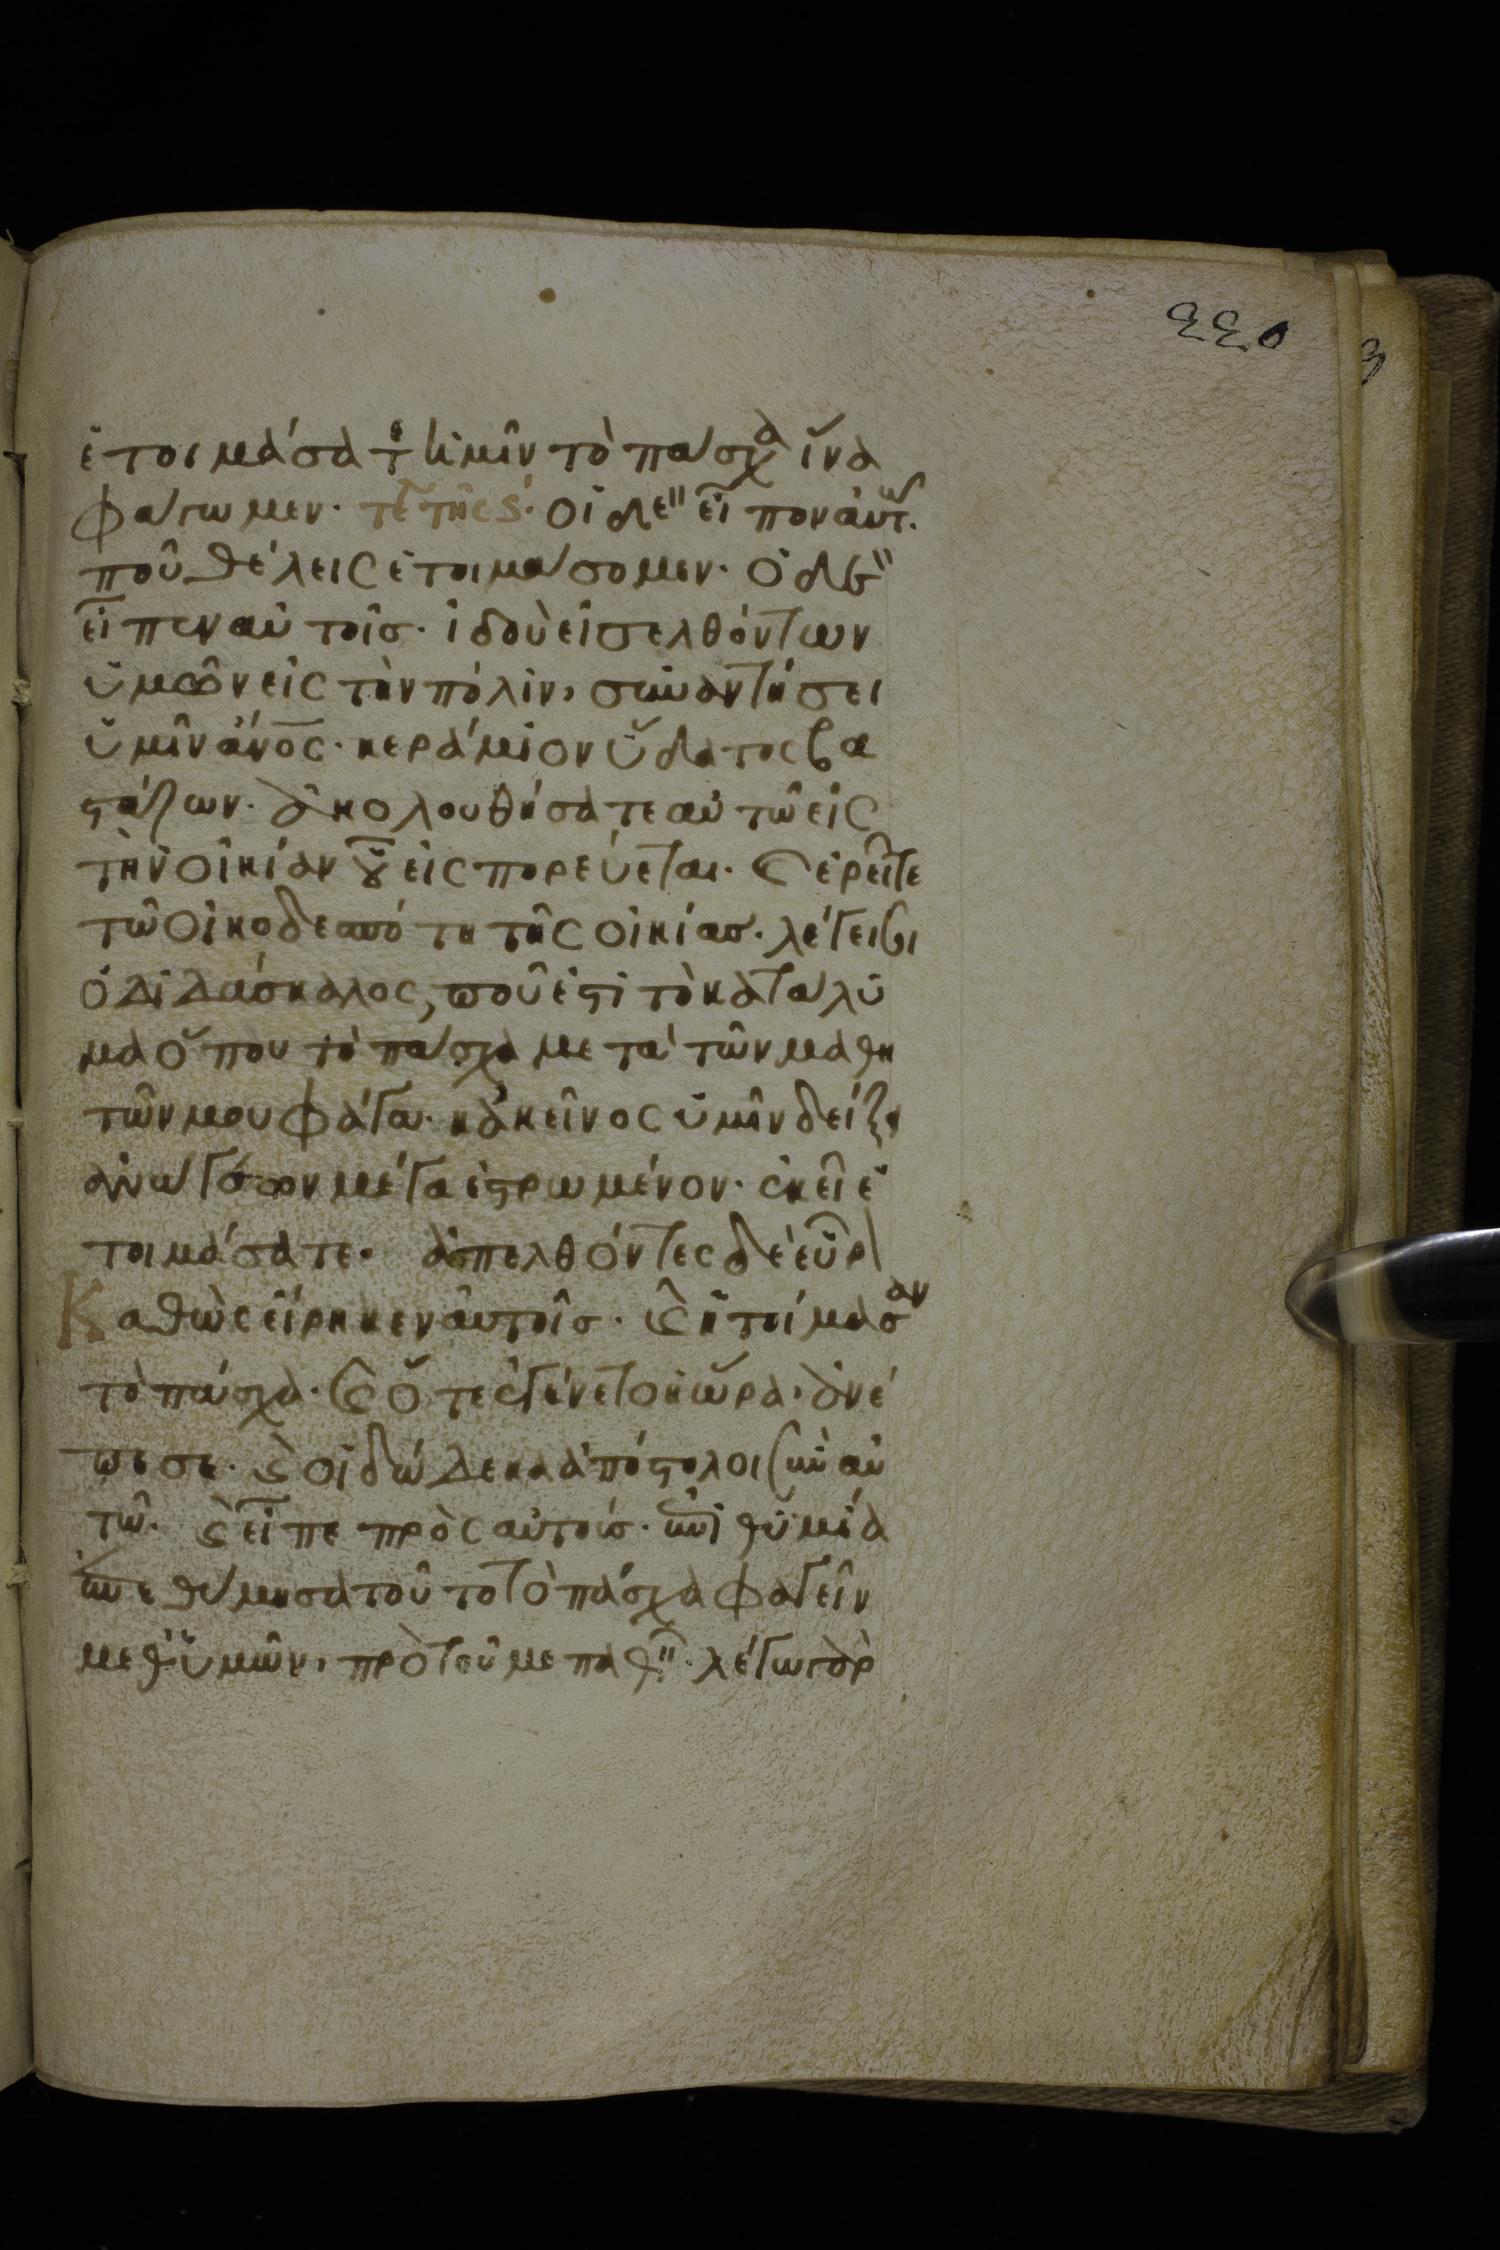 220
ἑτοιμάσατε ἡμῖν τὸ πάσχα ἵνα
φάγωμεν. τε τῆς ς. οἱ δὲ εἶπον αὐτ.
ποῦ θέλεις ἑτοιμάσομεν. ὁ δὲ
εἶπεν αὐτοῖς. ἰδοὺ εἰσελθόντων
ὑμῶν εἰς τὴν πόλιν, συναντήσει
ὑμῖν ἄνος. κεράμιον ὕδατος βα
στάζων. ἀκολουθήσατε αὐτῶ εἰς
τὴν οἰκίαν οὗ εἰσπορεύεται. ϛ ἐρεῖτε
τῶ οἰκοδεσπότη τῆς οἰκίας. λέγει σοι
ὁ διδάσκαλος, ποῦ ἐστὶ τὸ κατάλυ
μα ὅπου τὸ πάσχα μετὰ τῶν μαθη
τῶν μου φάγω. κἀκεῖνος ὑμῖν δείξει
ἀνώγεων μέγα ἐστρωμένον. ἐκεῖ ἑ
τοιμάσατε. ἀπελθόντες δὲ εὗρ
Καθὼς εἴρηκεν αὐτοῖς. ϛ ἡτοίμασαν
τὸ πάσχα. ϛ ὅτε ἐγένετο ἡ ὥρα, ἀνέ
πεσε. ϛ οἱ δώδεκα ἀπόστολοι σὺν αὐ
τῶ. ϛ εἶπε πρὸς αὐτούς. ἐπιθυμία
ἐπεθύμησα τοῦτο τὸ πάσχα φαγεῖν
μεθ' ὑμῶν, πρὸ τοῦ με παθεῖν. λέγω γὰρ